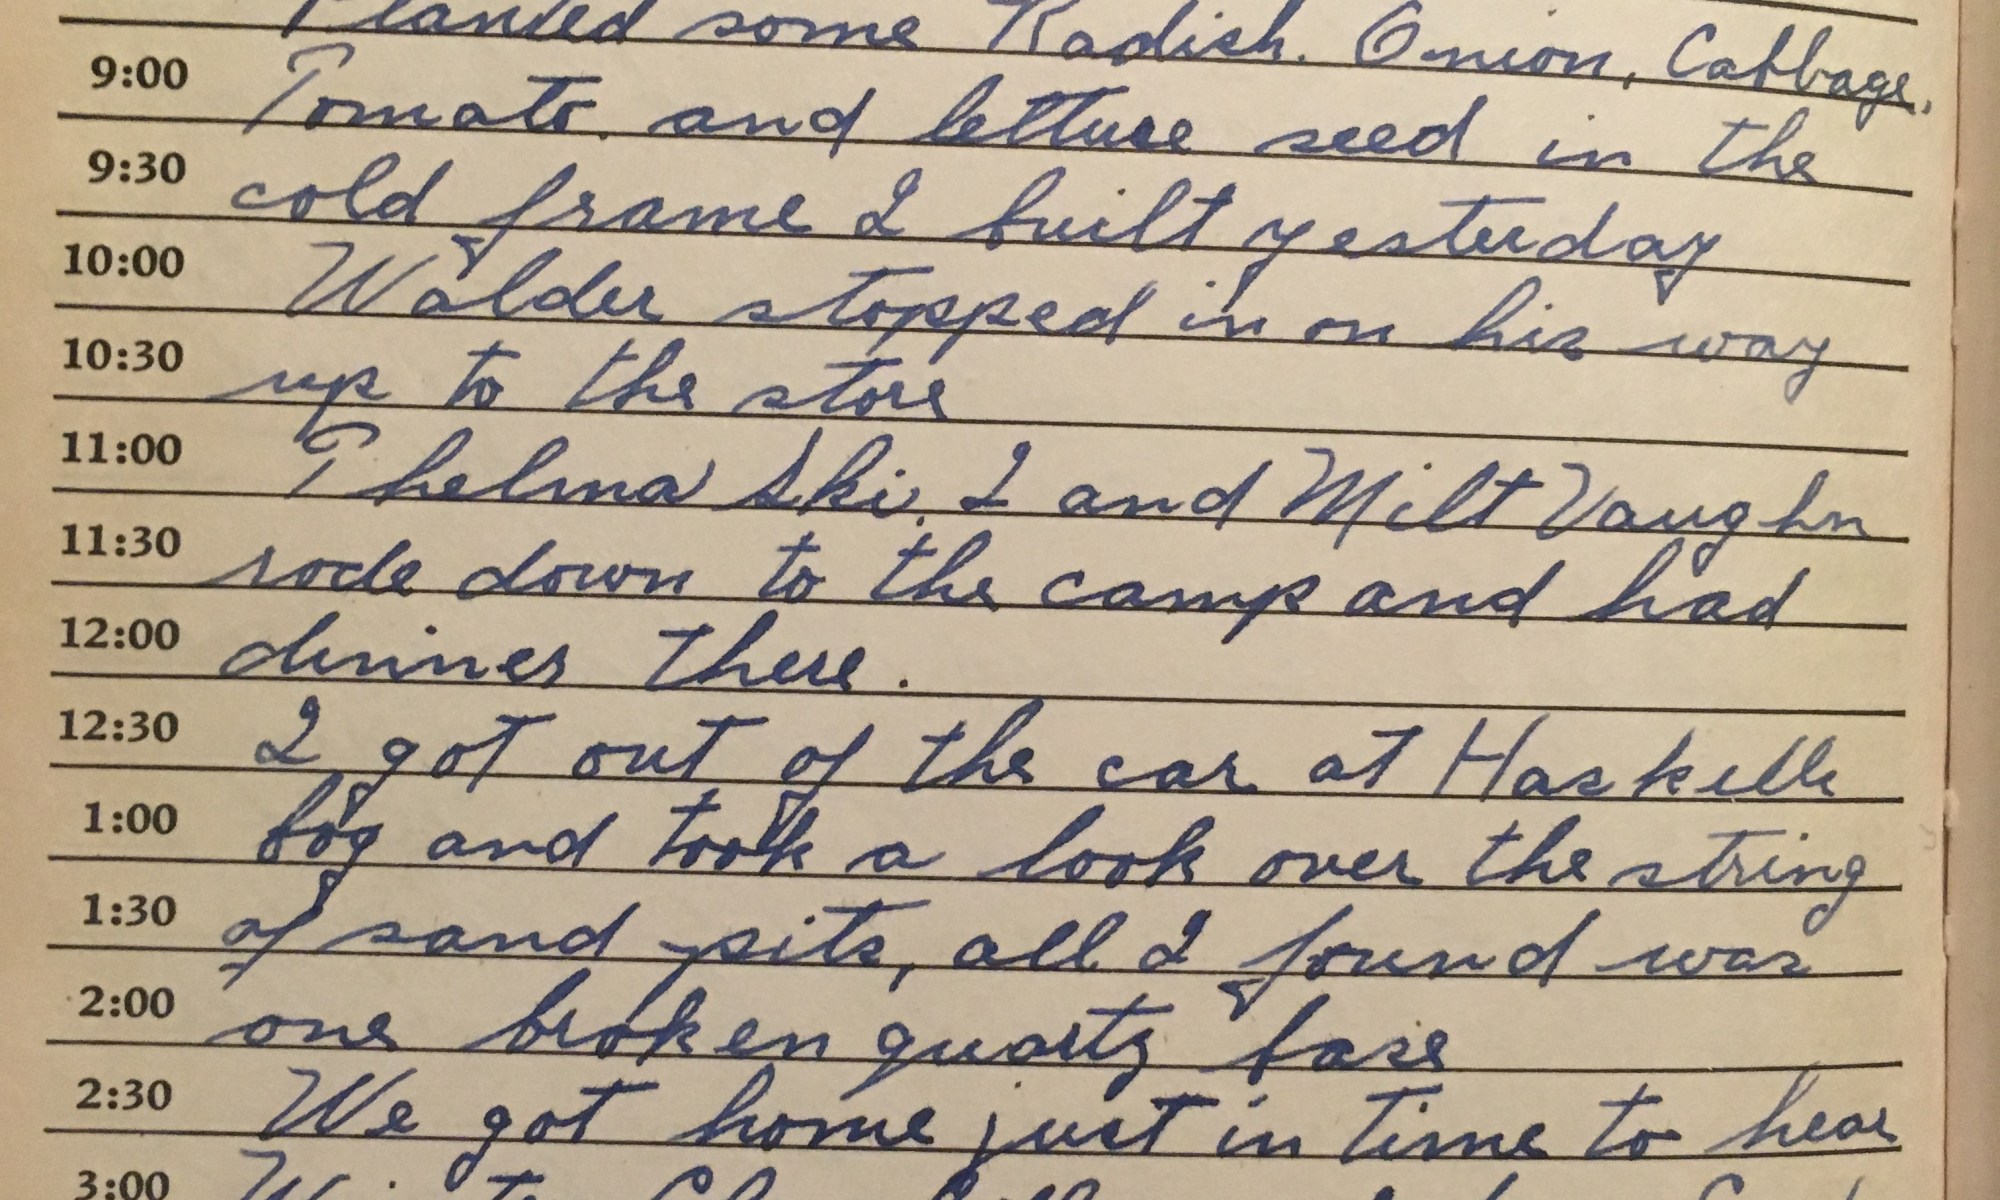 Planted some Radish. Onion, Cabbage,
9:00 Tomato. and lettuse seed in the
9:30 cold frame I built yesterday
10:00 Walder stopped in on his way
10:30 up to the store
11:00 Thelma Ski. I and Milt Vaughn
11:30 rode down to the camp and had
12:00 dinner there.
12:30 I got out of the car at Haskells
1:00 bog and took a look over the string
1:30 of sand pits, all I found was
2:00 one broken quartz base
2:30 We got home just in time to hear
3:00